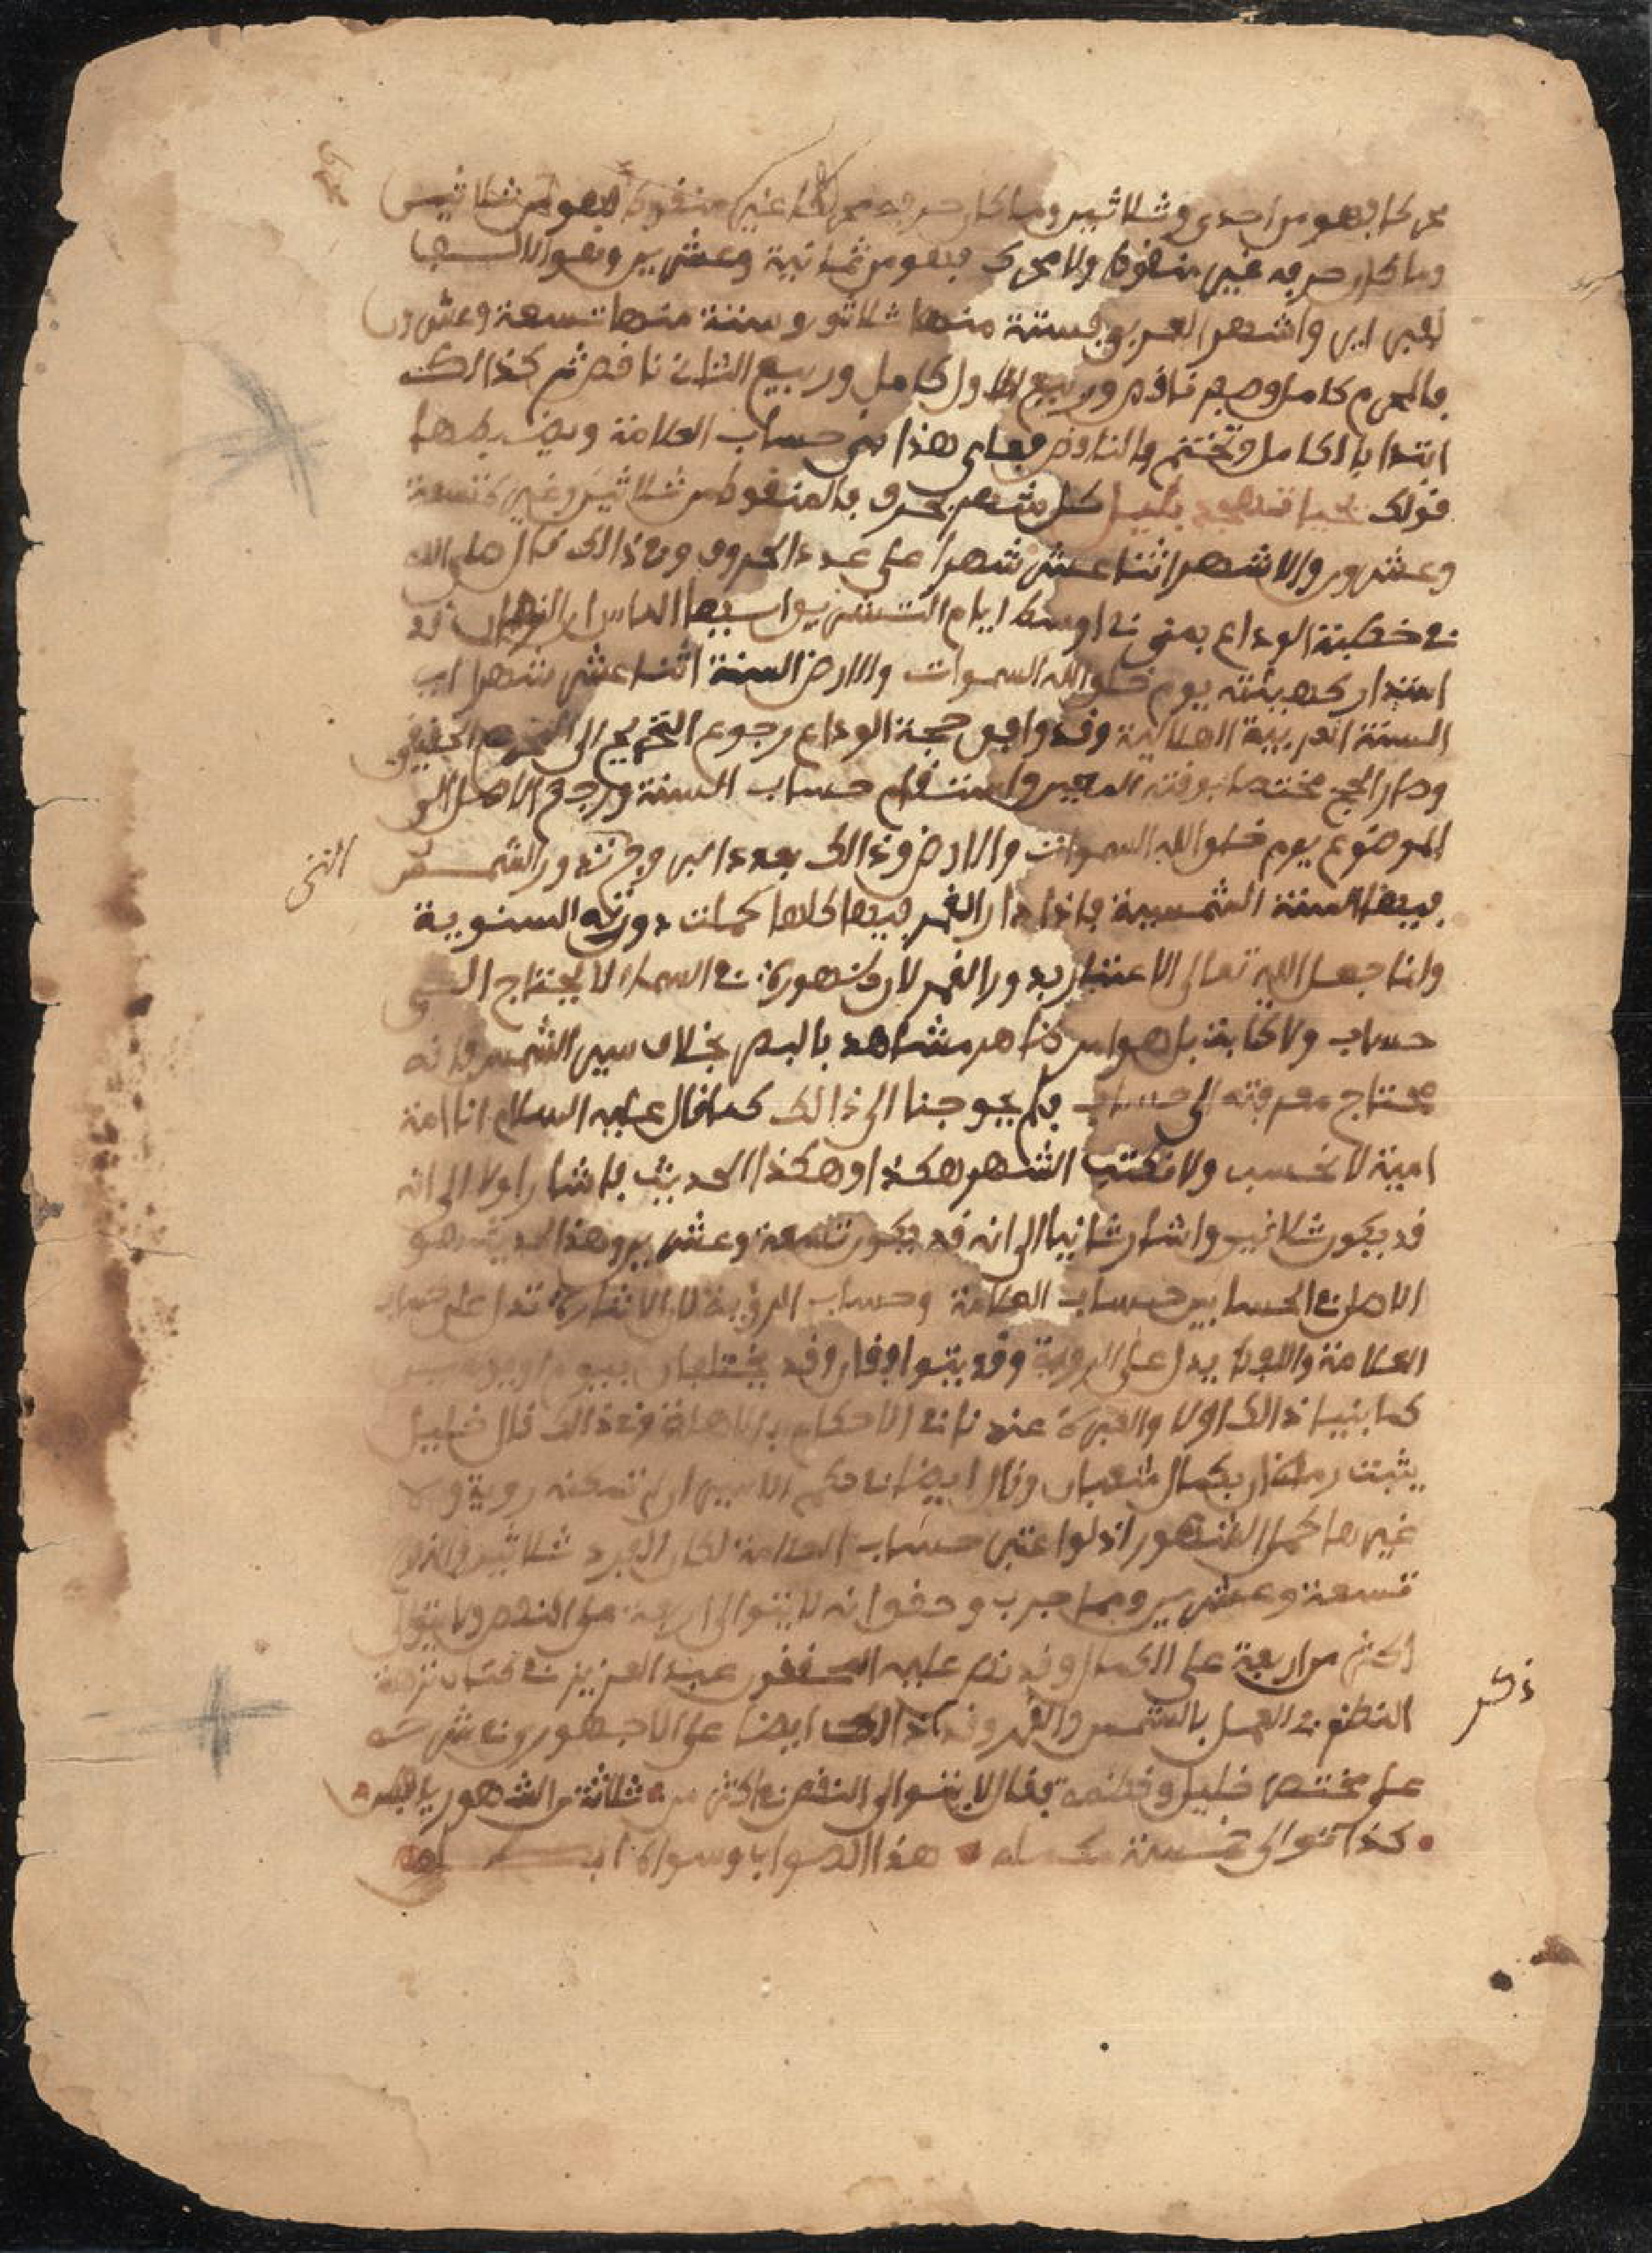 محركا فهو من احدى وثلاثين وما كان حرفه محركا غير منقوط فهو من ثلاثين
وما كان حرفه غير منقوط ولا محرك فهو من ثمانية وعشرين وهو الالف
لفبراير واشهر العرب فستة منها ثلاثون وستة منها تسعة وعشرون
فالمحرم كامل وصفر ناقص وربيع الاول كامل وربيع الثاني ناقص ثم كذالك
ابتدا بالكامل وتختم بالناقص فعلى هذا من حساب العلامة ويضبطها
قولك كل شهر بحرف فالمنقوط من ثلاثين وغيره تسعة
وعشرون والاشهر اثنا عشر شهرا على عدد الحروف وفي ذالك قال صلى الله
في خطبة الوداع بمنى في اوسط ايام التشريق ايها الناس ان الزمان قد
استدار كهيئته يوم خلق الله السموات والارض السنة اثنا عشر شهرا اي
السنة العربية الهلالية وقد وافق حجة الوداع رجوع التحريم الى المحرم الحقيقي
وصار الحج مختصا بوقته المعين واستقام حساب السنة ورجع الاصل الى
الموضوع يوم خلق الله السموات والارض وذالك بعدد البروج تدور الشمس
فيها السنة الشمسية فاذا دار القمر فيها كلها كملت دورته السنوية
وانما جعل الله تعالى الاعتبار بدور القمر لان ظهوره في السماء لا يحتاج الى
حساب ولا كتابة بل هو امر ظاهر مشاهد بالبصر بخلاف سير الشمس فانه
تحتاج معرفته الى حساب فلم يحوجنا الى ذالك كما قال عليه السلام انا امة
امية لا نحسب ولا نكتب الشهر هكذا وهكذا الحديث فاشار اولا الى انه
قد يكون ثلاثين واشار ثانيا الى انه قد يكون تسعة وعشرين وهذا الحديث هو
الاصل في الحسابين حساب العلامة وحساب الرؤية لان الاشارة تدل على حساب
العلامة واللفظ يدل على الروية وقد يتوافقان وقد يختلفان بيوم او يومين
كما بنينا ذالك اولا والعبرة عندنا في الاحكام بالاهلة وفي ذالك قال خليل
يثبت رمضان بكمال شعبان وقال ايضا في حكم الاسير ان لم تمكنه روية ولا
غيرها كمل الشهور اذ لو اعتبر حساب العلامة لكان الفرد ثلاثين والزوج
تسعة وعشرين ومما جرب وحقق انه لا يتوالى اربعة على النقص ولا يتوالى
اكثر من اربعة على الكمال وقد نص عليه المحقق عبد العزيز في كتاب نزهة
النظر في العمل بالشمس والقمر وقد ذالك ايضا على الاجهوري في شرحه
على مختصر خليل ونظمه فقال لا يتوالى النقص في اكثر من ثلاثة من الشهور يا فطن
كذا توالى خمسة مكمله هذا الصواب وسواه ابطله
النخ
ذكر